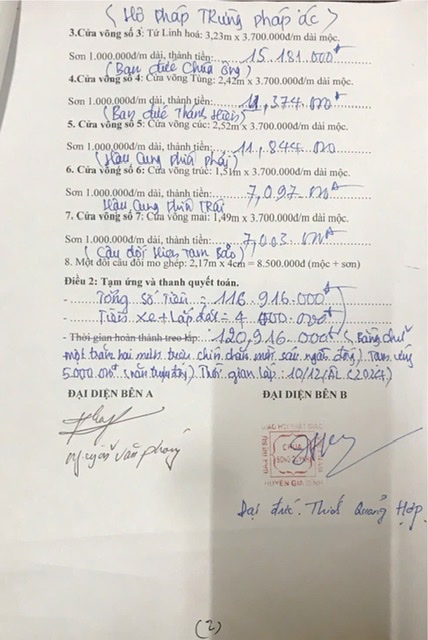 (Hộ pháp Trừng pháp ác)
3.Cửa võng số 3: Tứ Linh hoá: 3,23m x 3.700.000đ/m dài mộc.
Sơn 1.000.000đ/m dài, thành tiền: 15.181.000đ
(Ban đức Chúa Ông)
4.Cửa võng số 4: Cửa võng Tùng: 2,42m x 3.700.000đ/m dài mộc.
Sơn 1.000.000đ/m dài, thành tiền: 11,374.000đ
(Ban đức Thánh Hiền)
5. Cửa võng số 5: Cửa võng cúc: 2,52m x 3.700.000đ/m dài mộc.
Sơn 1.000.000đ/m dài, thành tiền: 11,844.000
(Hậu Cung phía phải)
6. Cửa võng số 6: Cửa võng trúc: 1,51m x 3.700.000đ/m dài mộc.
Sơn 1.000.000đ/m dài, thành tiền: 7,097.000đ
Hậu Cung phía Trái
7. Cửa võng số 7: Cửa võng mai: 1,49m x 3.700.000đ/m dài mộc.
Sơn 1.000.000đ/m dài, thành tiền: 7,003.000đ
(Câu đối Hiên Tam Bảo)
8. Một đôi câu đối mo ghép: 2,17m x 4cm = 8.500.000đ (mộc + sơn)
Điều 2: Tạm ứng và thanh quyết toán.
- Tổng số tiền = 116.916.000đ
- Tiền xe + Lắp đặt = 4.000.000đ
- Thời gian hoàn thành treo lắp: 120.916.000đ (Bằng chữ
một trăm hai mươi triệu chín trăm mười sáu ngàn đồng). Tạm ứng
5.000.000đ (năm triệu đồng). Thời gian lắp: 10/12/ÂL (2024)
ĐẠI DIỆN BÊN A ĐẠI DIỆN BÊN B
CHÙA
HUYỆN GIA BÌNH
Nguyễn Văn Phong
Đại đức. Thích Quảng Hợp.
(2)